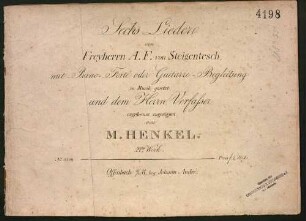 4198
Sechs Lieder
von
Freyherrn A. F. von Steigentesch,
mit Piano-Forte oder Guitarre-Begleitung
in Musik gesetzt
und dem Herrn Verfasser
zugeeignet
von
M. HENKEL.
Werk.
Offenbach a/M, bey Johann André.